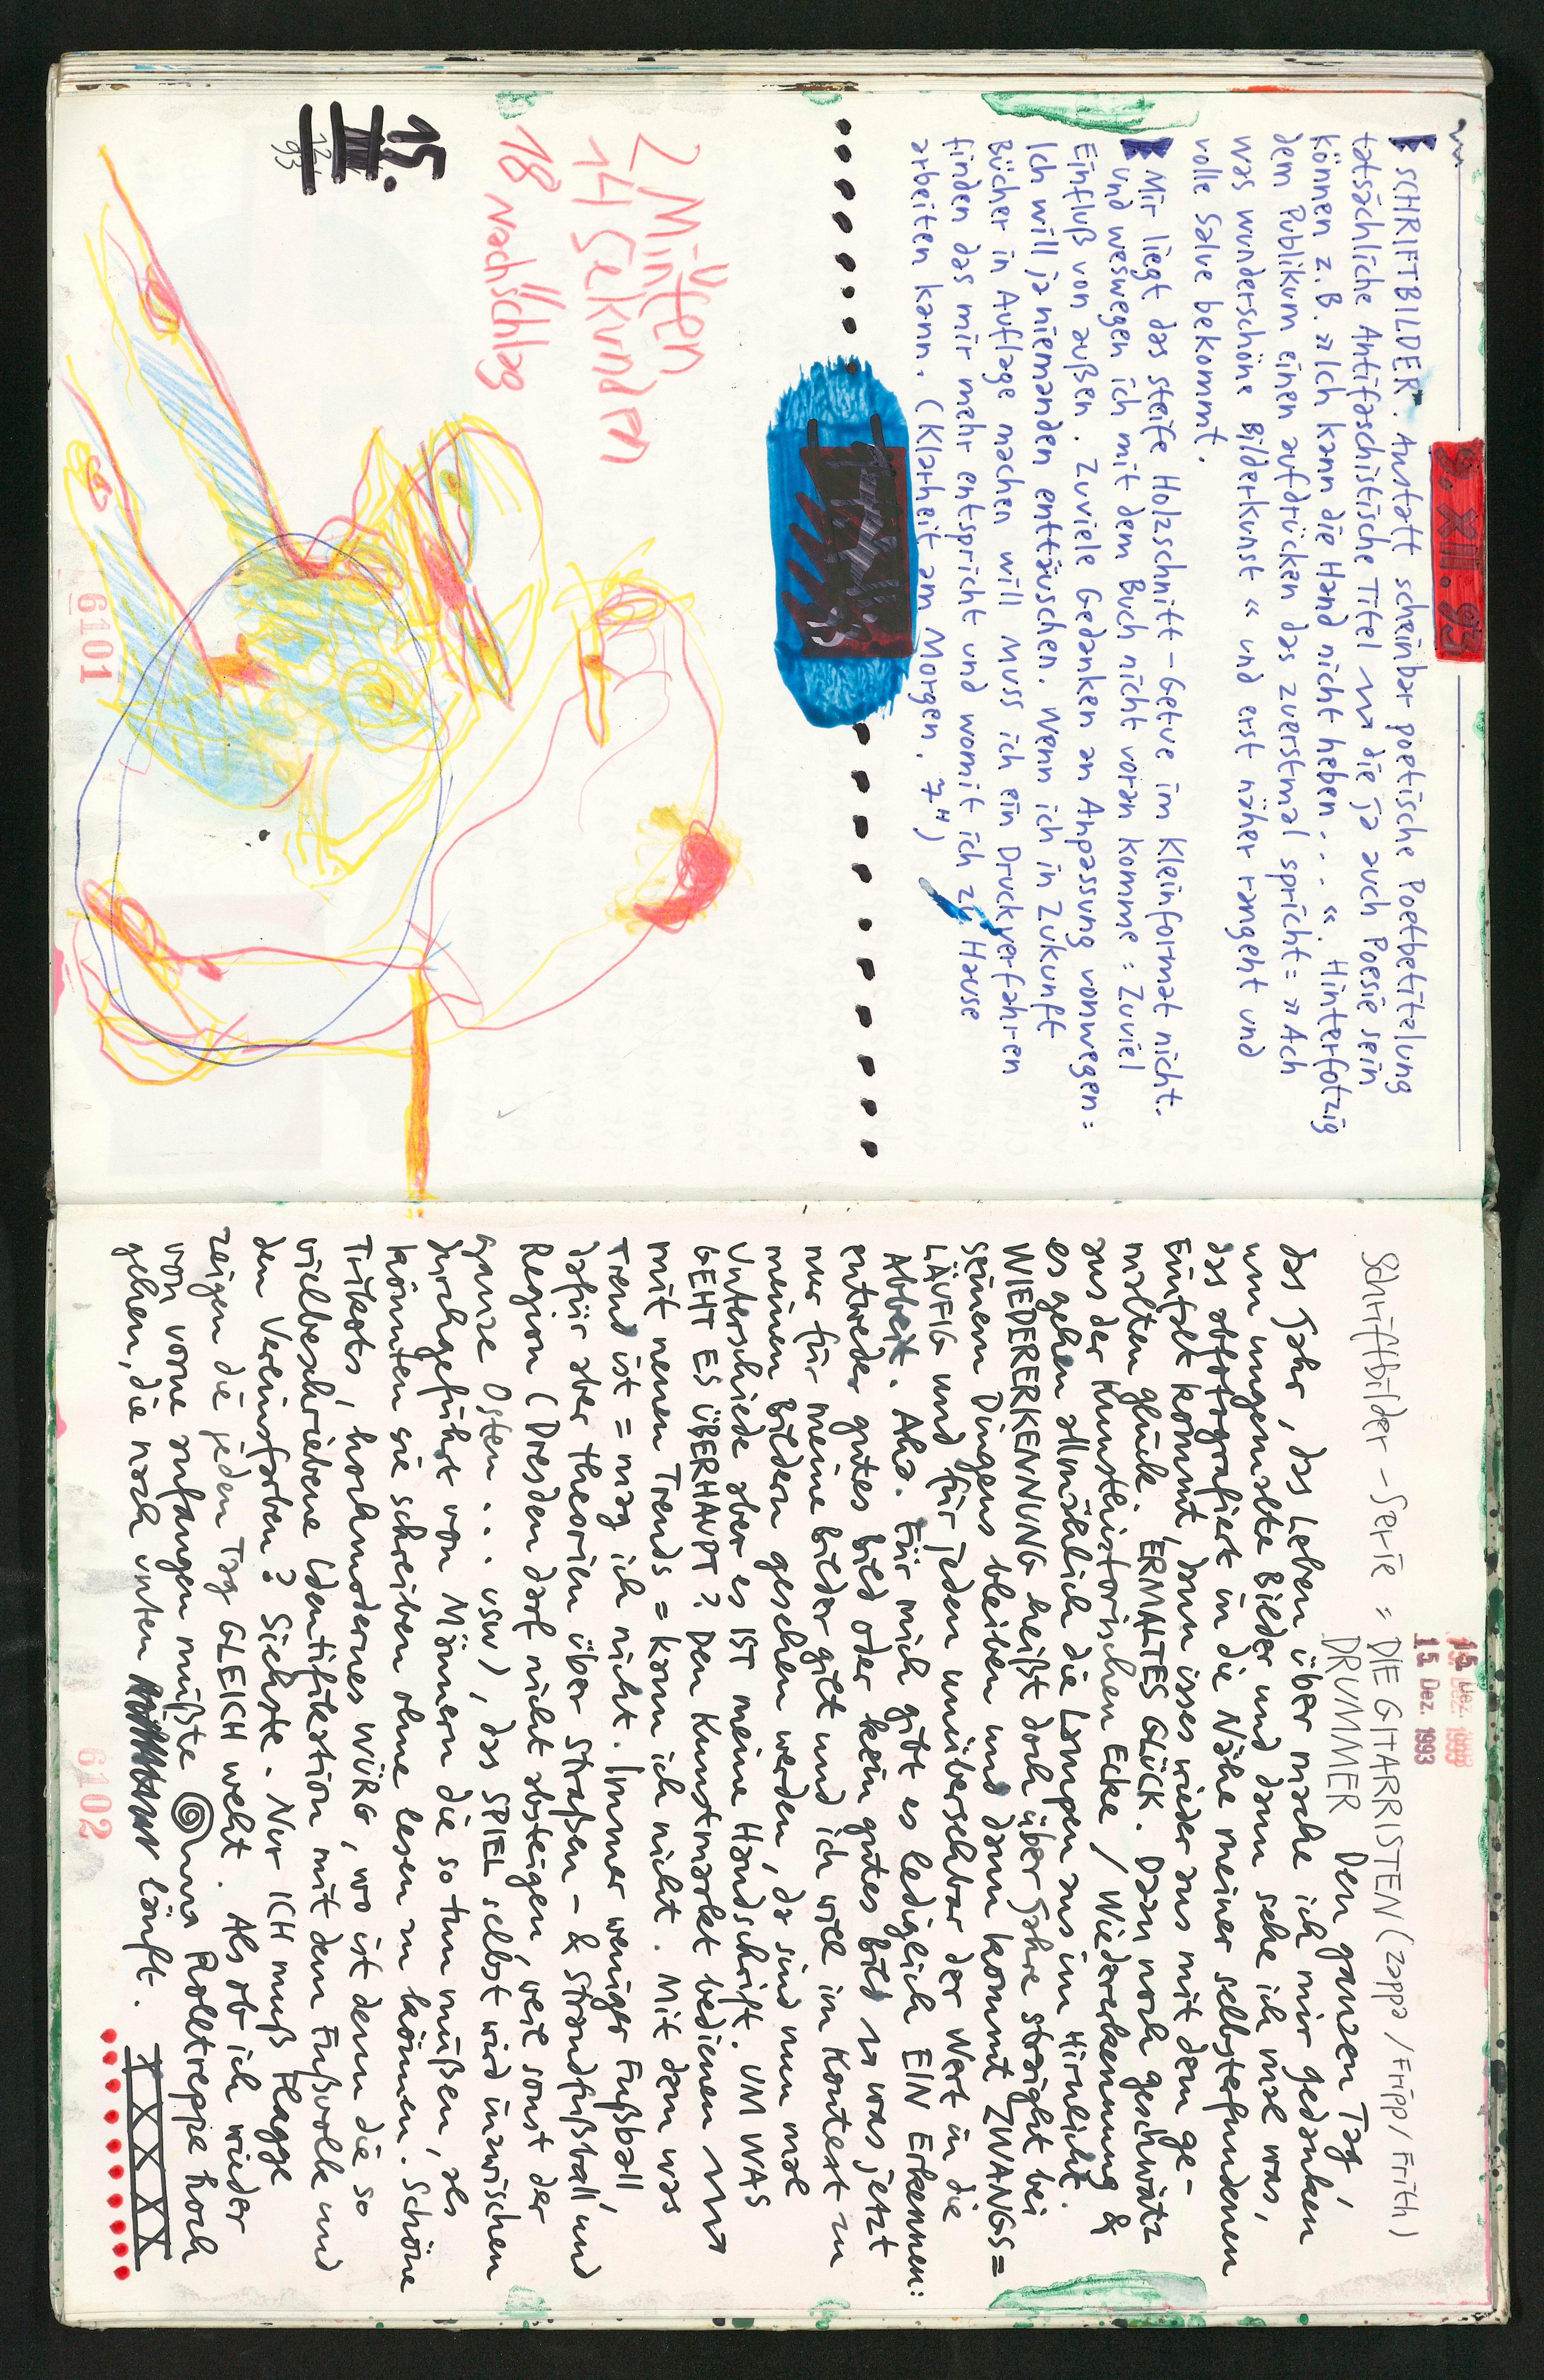 9. XII. 93
SCHRIFTBILDER. Anstatt scheinbar poetische Poetbetitelung
tatsächliche Antifaschistische Titel die ja auch Poesie sein
können z.B. »Ich kann die Hand nicht heben... «. Hinterfotzig
dem Publikum einen aufdrücken das zuerstmal spricht = »Ach
was wunderschöne Bilderkunst « und erst näher rangeht und
volle Salve bekommt.
Mir liegt das steife Holzschnitt-Getue im Kleinformat nicht.
und weswegen ich mit dem Buch nicht voran komme : Zuviel
Einfluß von außen. Zuviele Gedanken an Anpassung vonwegen =
Ich will ja niemanden enttäuschen. Wenn ich in Zukunft
Bücher in Auflage machen will muss ich ein Druckverfahren
finden das mir mehr entspricht und womit ich zu Hause
arbeiten kann. (Klarheit am Morgen. 7")
2 Minuten
14 Sekunden
18 Nachschlag
15.
XII
12
93
6101
15. Dez. 1993
15 Dez. 1993
Schriftbilder - Serie = DIE GITARRISTEN (Zappa / Fripp / Frith)
DRUMMER Den ganzen Tag,
das Jahr, das Leben über mache ich mir gedanken
um ungemalte Bilder und dann sehe ich mal was,
das abfotografiert in die Nähe meiner selbsterfundenen
Einfalt kommt, dann isses wieder aus mit dem ge-
malten glück. ERMALTES GLÜCK. Dazu noch geschwätz
aus der Kunsthistorischen Ecke / Wiedererkennung &
es gehen allmählich die Lampen aus im Hirnlicht.
WIEDERERKENNUNG heißt doch über Jahre straight bei
seinem Dingens bleiben und dann kommt ZWANGS=
LÄUFIG und für jeden unübersehbar der Wert in die
Arbeit. Aha. Für mich gibt es lediglich EIN Erkennen:
entweder gutes bild oder kein gutes bild was jetzt
nur für meine bilder gilt und ich will im Kontext zu
meinen bildern gesehen werden, da sind nun mal
Unterschiede aber es IST meine Handschrift. UM WAS
GEHT ES ÜBERHAUPT? Den Kunstmarkt bedienen
mit neuen Trends = kann ich nicht. Mit dem was
Trend ist = mag ich nicht. Immer weniger Fußball,
dafür aber theorien über straßen- & strandfußball, und
Region (Dresden darf nicht absteigen, weil sonst der
ganze Osten... usw), das SPIEL selbst wird inzwischen
durchgeführt von Männern die so tun müßen, als
könnten sie schreiben ohne lesen zu können. Schöne
Trikots, hochmodernes WÜRG, wo ist denn die so
vielbeschriebene Identifikation mit dem Fußvolk und
den Vereinsfarben? Siehste. Nur ICH muß Flagge
zeigen die jeden Tag GLEICH weht. Als ob ich wieder
von vorne anfangen müßte ne Rolltreppe hoch
gehen, die nach unten läuft.
XXXXX
6102